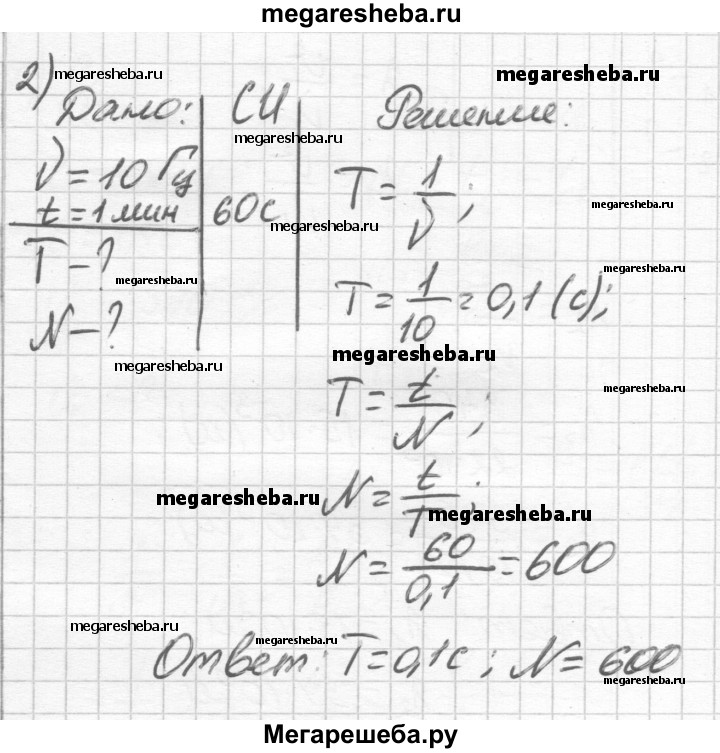 megaresheba.ru
2) megaresheba.ru
megaresheba.ru
Дано: СИ Решение:
megaresheba.ru
ν = 10 Гц
t = 1 мин 60 с
megaresheba.ru
megaresheba.ru
T = 1/ν;
T - ?
megaresheba.ru
megaresheba.ru
T = 1/10 = 0,1 (с);
N - ?
megaresheba.ru
megaresheba.ru
megaresheba.ru
T = t/N;
N = t/T;
megaresheba.ru
megaresheba.ru
N = 60/0,1 = 600
megaresheba.ru
megaresheba.ru
megaresheba.ru
Ответ: T = 0,1 с; N = 600
Мегарешеба.ру